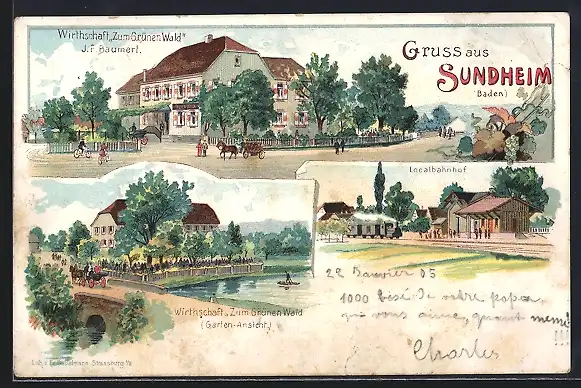 Wirthschaft „Zum Grünen Wald"
J. F. Baumert.
Gruss aus
SUNDHEIM
(Baden)
Localbahnhof
Wirthschaft „Zum Grünen Wald
(Garten-Ansicht.)
22 Janvier 05
1000 de votre papa
qui vous aime, quand même
!!!
Charles
Strassburg